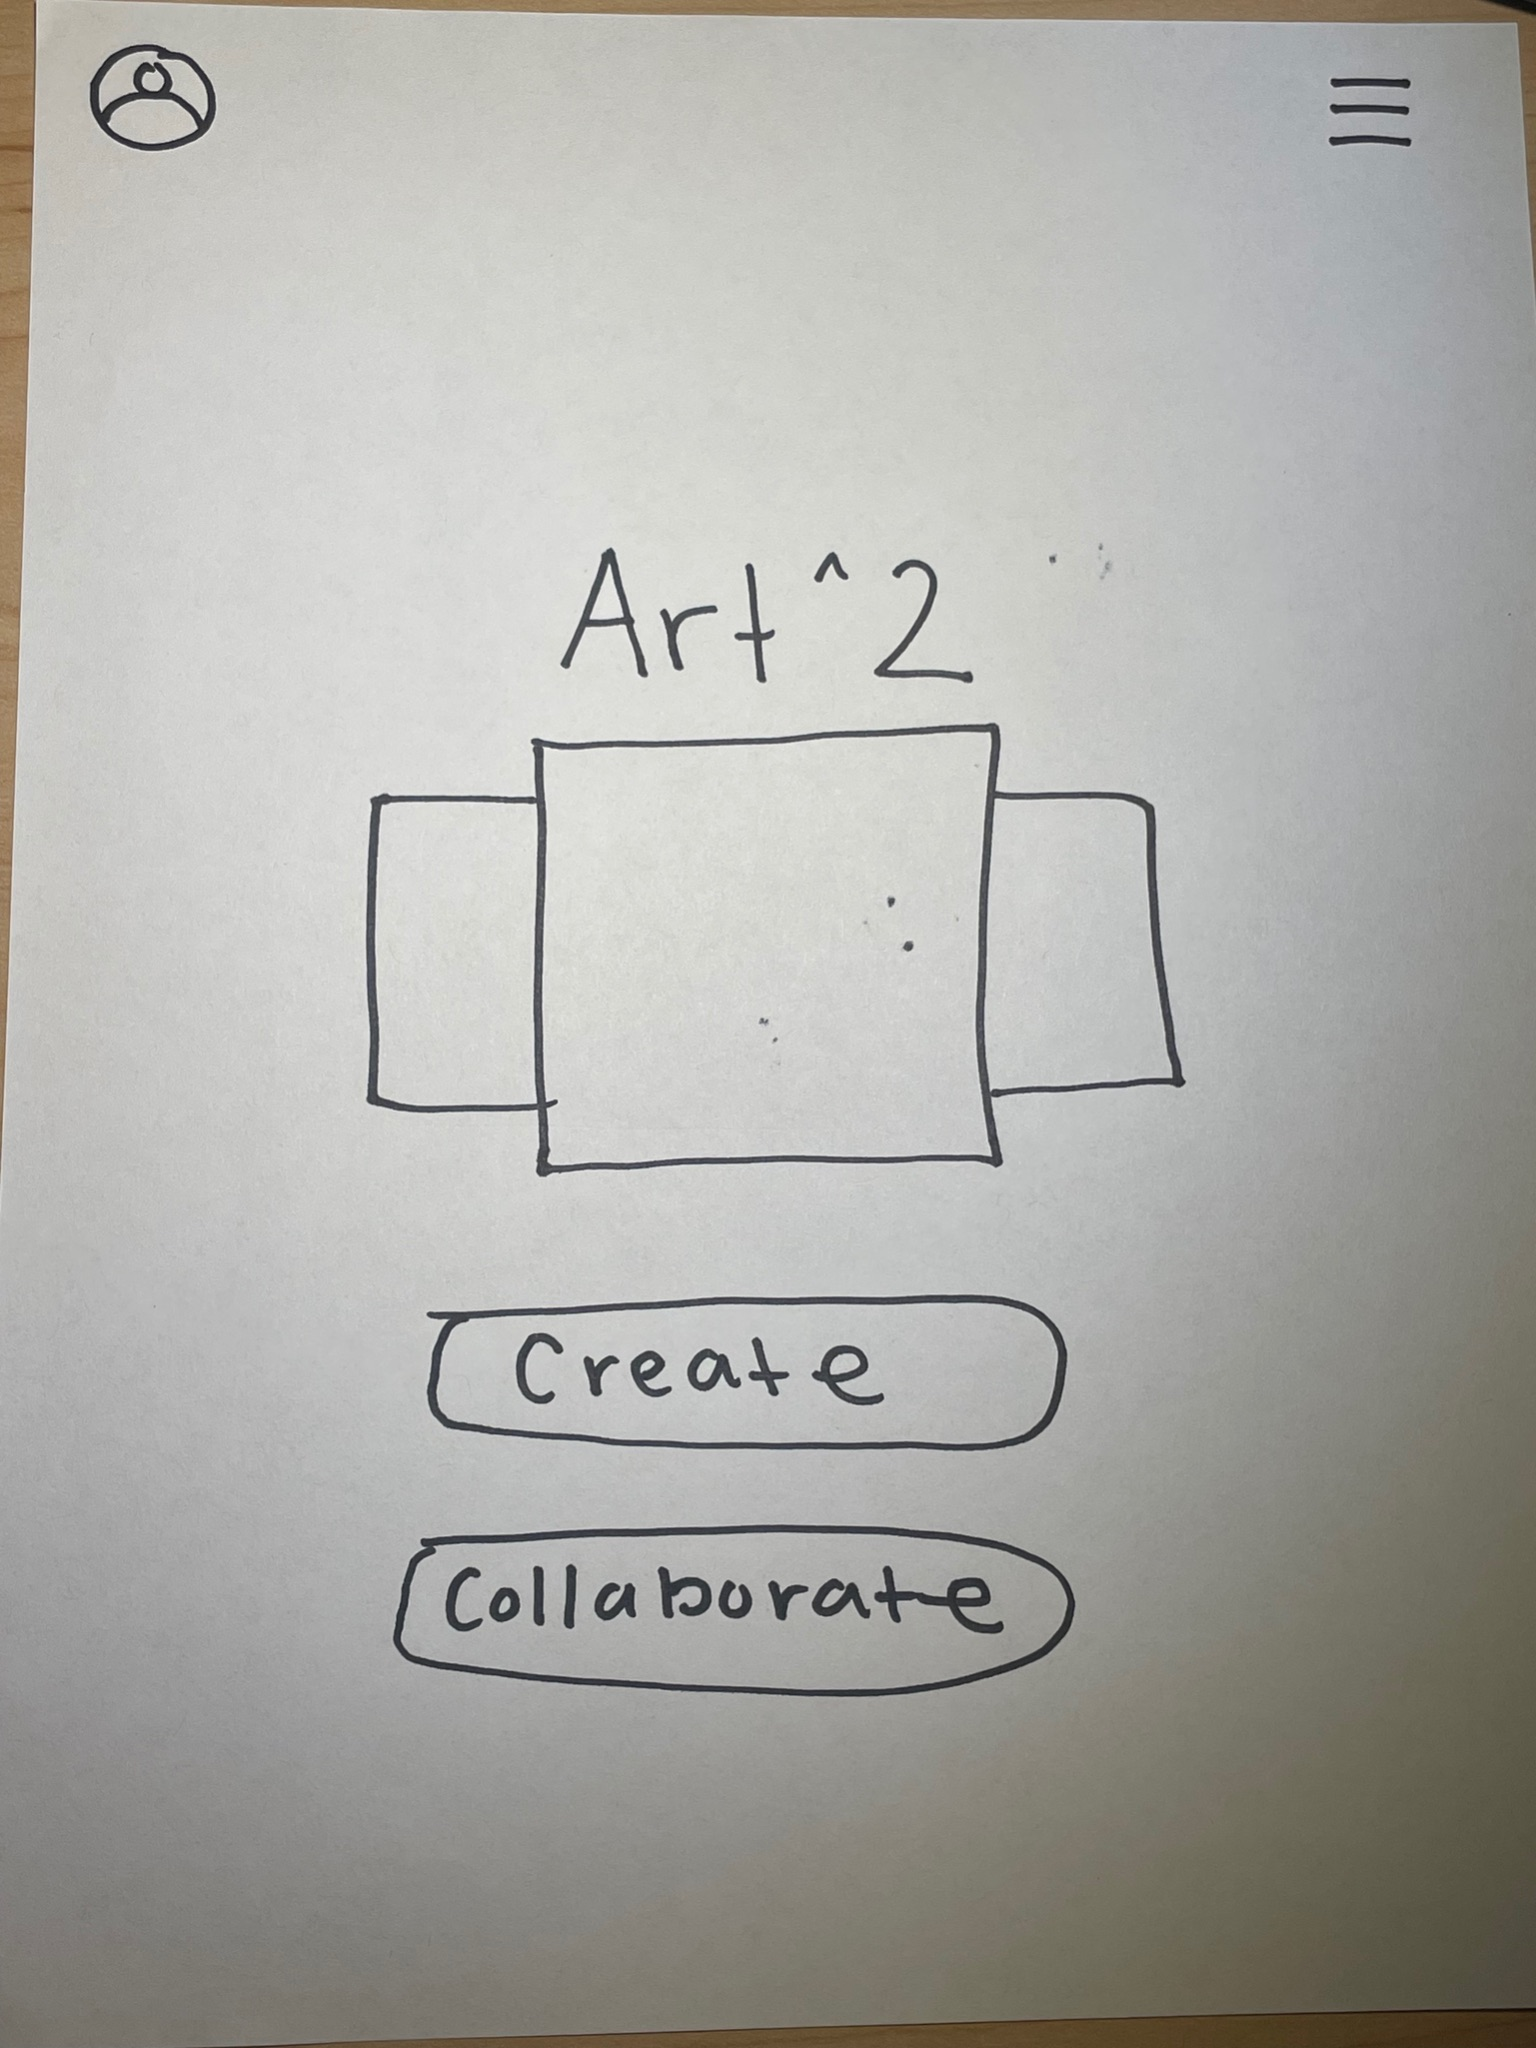 Art^2
Create
Collaborate